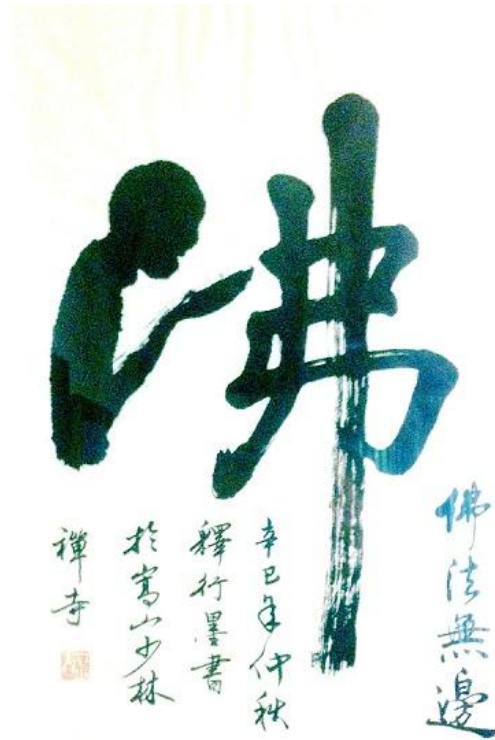 佛
佛法無邊
辛巳年仲秋
釋行墨書
於嵩山少林
禪寺